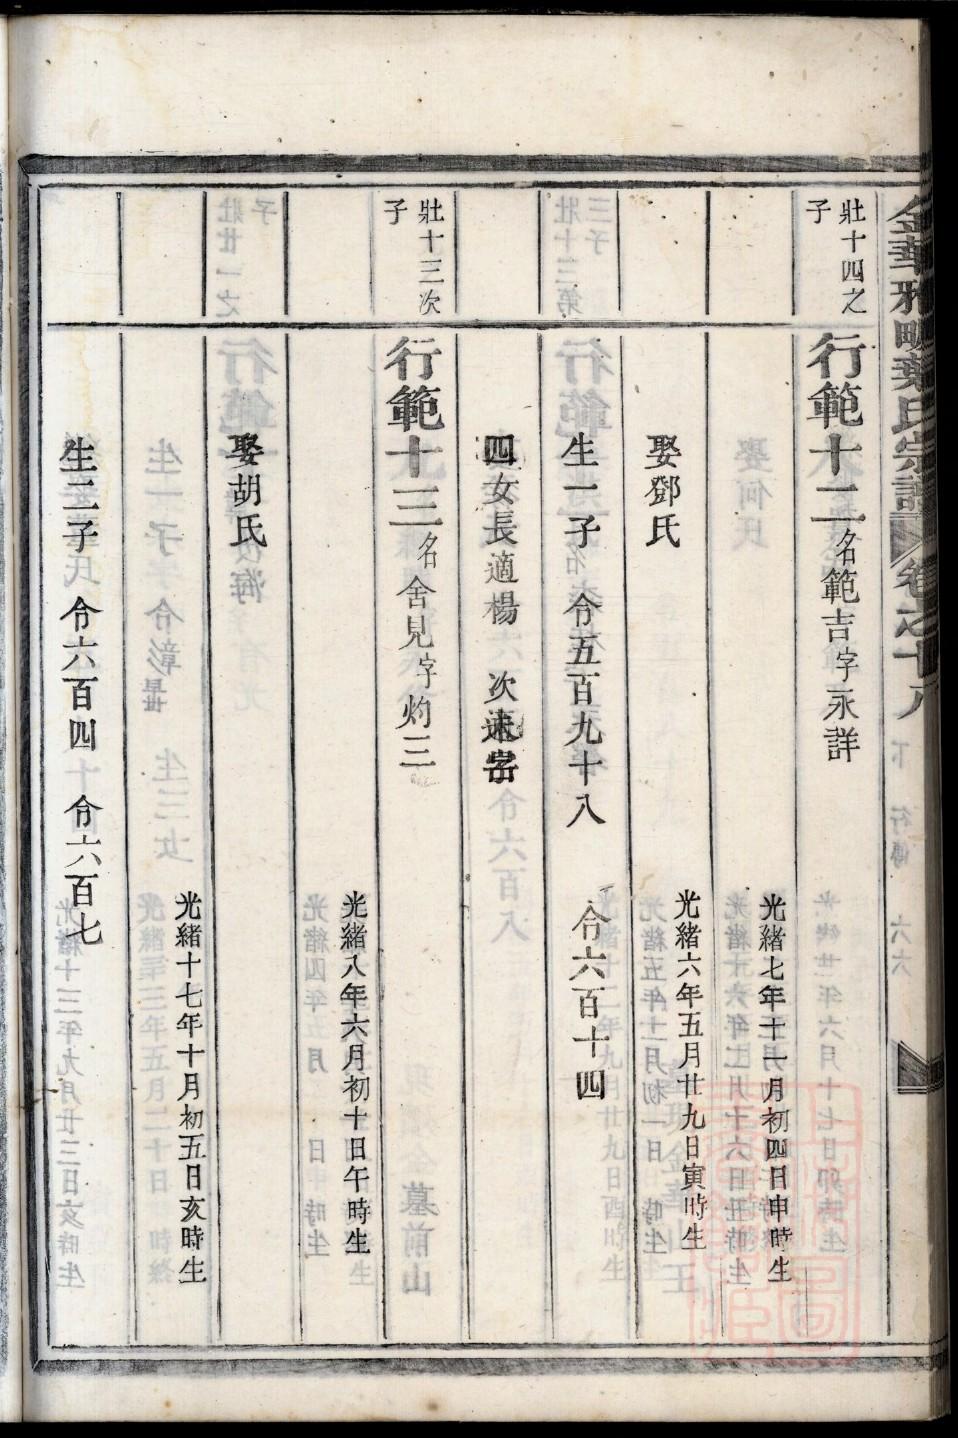 金華雅畈葉氏宗譜 卷之十八 下 行傳 六六
壯十四之
子
行範十二 名範吉字永詳
光緒七年十一月初四日申時生
娶鄧氏
光緒六年五月廿九日寅時生
生二子 令五百九十八 令六百十四
四女長適楊 次未字
壯十三次
子
行範十三 名舍見字灼三
光緒八年六月初十日午時生
娶胡氏
光緒十七年十月初五日亥時生
生二子 令六百四 令六百七